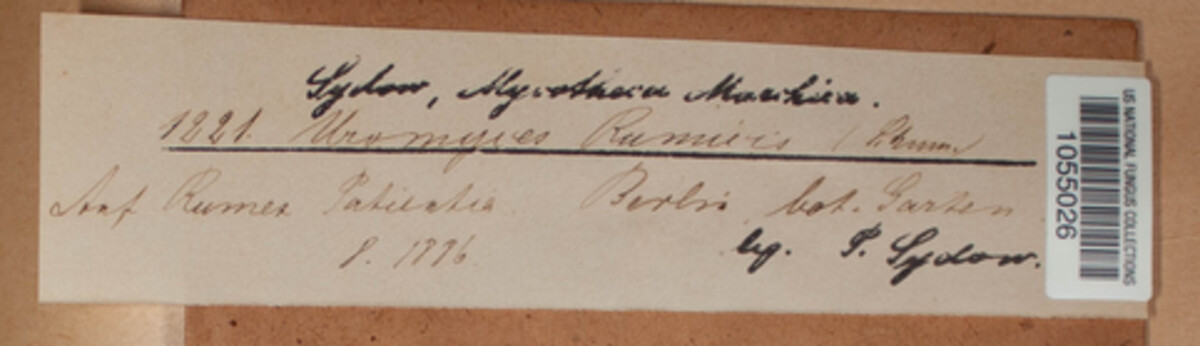 Sydow, Mycotheca Marchica.
1221. Uromyces Rumicis (Schum.)
Auf Rumex Patientia Berlin, bot. Garten
8. 1886
leg. P. Sydow.
US NATIONAL FUNGUS COLLECTIONS
1055026